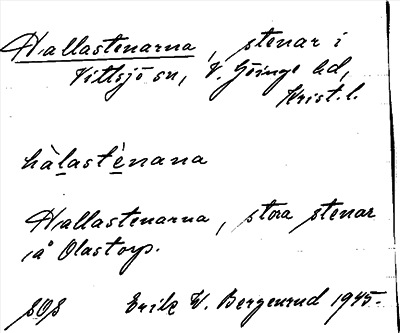 Hallastenarna, stenar i
Vittsjö sn, V. Göinge hd,
Krist. l.
hàlastènana
Hallastenarna, stora stenar
i å Olastorp.
SOS Erik W. Bergenrud 1945.